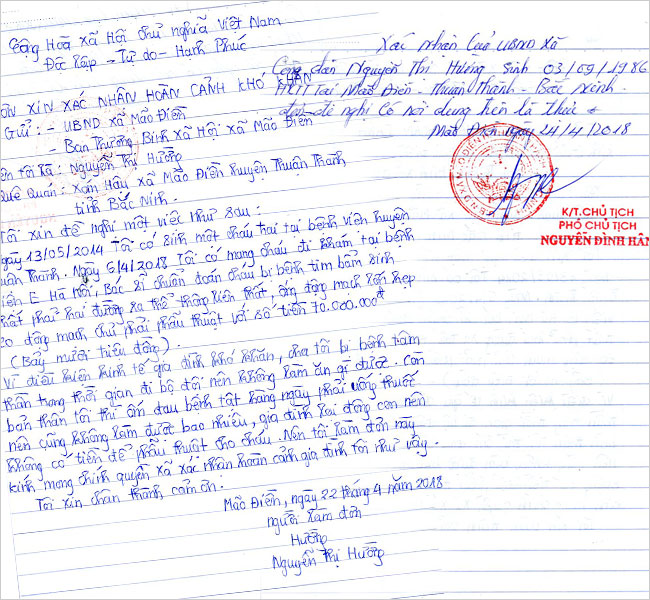 Cộng Hoà xã Hội chủ nghĩa Việt Nam
Độc lập - Tự do - Hạnh Phúc
ƠN XIN XÁC NHẬN HOÀN CẢNH KHÓ KHĂN
Gửi: - UBND xã Mão Điền
- Ban Thương Binh xã Hội xã Mão Điền
ên tôi là: Nguyễn Thị Hường
Quê Quán: Xóm Hậu xã Mão Điền huyện Thuận Thành
tỉnh Bắc Ninh.
Tôi xin đề nghị một việc như sau:
gày 13/05/2014 Tôi có sinh một cháu trai tại bệnh viện huyện
uận Thành. Ngày 5/4/2018 Tôi có mang cháu đi khám tại bệnh
iện E Hà Nội, Bác sĩ chuẩn đoán cháu bị bệnh tim bẩm sinh
thất phải hai đường ra thể thông liên thất, động mạch lớn hẹp
eo động mạch chủ phải phẫu thuật với số tiền 70.000.000đ
(Bảy mươi triệu đồng).
Vì điều kiện kinh tế gia đình khó khăn, cha tôi bị bệnh tâm
thần trong thời gian đi bộ đội nên không làm ăn gì được. Còn
bản thân tôi thì ốm đau bệnh tật hàng ngày phải uống thuốc
nên cũng không làm được bao nhiêu, gia đình lại đông con nên
không có tiền để phẫu thuật cho cháu. Nên tôi làm đơn này
kính mong chính quyền xã xác nhận hoàn cảnh gia đình tôi như vậy.
Tôi xin chân thành cảm ơn.
Mão Điền, ngày 22 tháng 4 năm 2018
người làm đơn
Hường
Nguyễn Thị Hường
Xác nhận của UBND xã
Công dân Nguyễn Thị Hương Sinh 03/09/1986
HKTT Tại Mão Điền - Thuận Thành - Bắc Ninh.
đơn đề nghị có nội dung trên là thực
Mão Điền ngày 24/4/2018
K/T.CHỦ TỊCH
PHÓ CHỦ TỊCH
NGUYỄN ĐÌNH HÂN